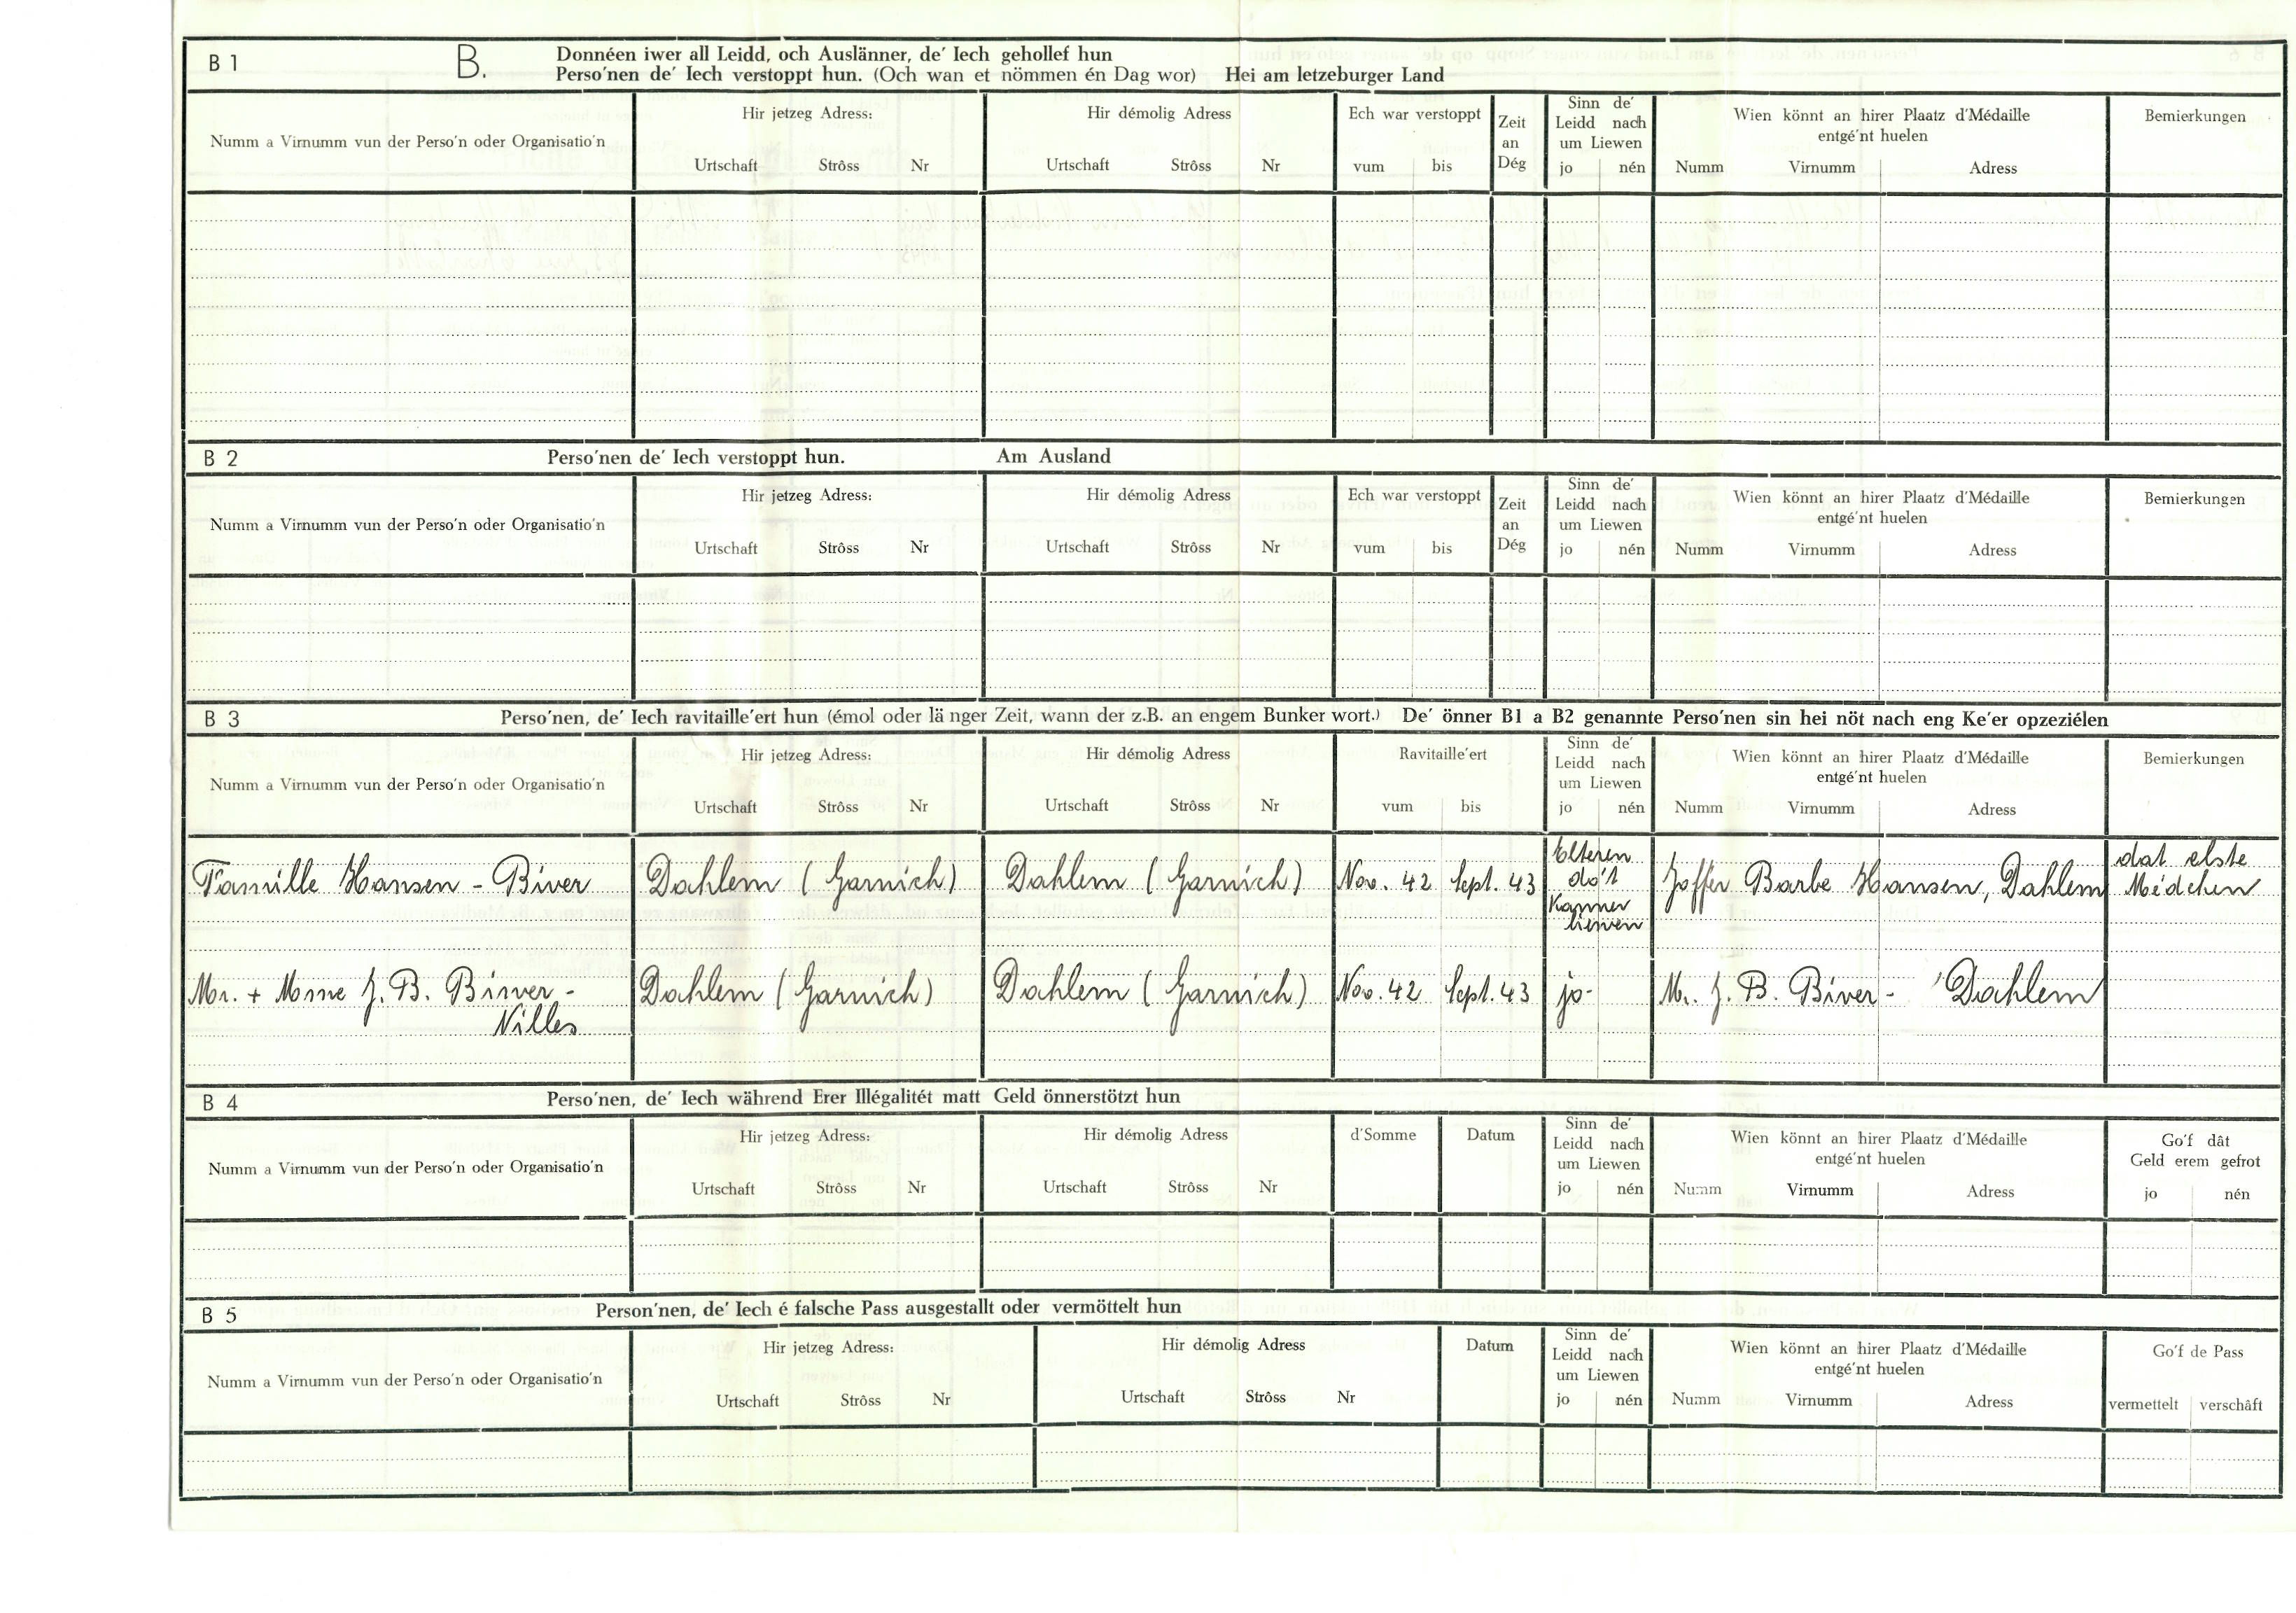 B 1
B.
Donnéen iwer all Leidd, och Auslänner, de' Iech gehollef hun
Perso'nen de' Iech verstoppt hun. (Och wan et nömmen én Dag wor) Hei am letzeburger Land
Numm a Virnumm vun der Perso'n oder Organisatio'n
Hir jetzeg Adress:
Urtschaft Strôss Nr
Hir démolig Adress
Urtschaft Strôss Nr
Ech war verstoppt
vum bis
Zeit
an
Dég
Sinn de'
Leidd nach
um Liewen
jo nén
Wien könnt an hirer Plaatz d'Médaille
entgé'nt huelen
Numm Virnumm Adress
Bemierkungen
B 2
Perso'nen de' Iech verstoppt hun. Am Ausland
Numm a Virnumm vun der Perso'n oder Organisatio'n
Hir jetzeg Adress:
Urtschaft Strôss Nr
Hir démolig Adress
Urtschaft Strôss Nr
Ech war verstoppt
vum bis
Zeit
an
Dég
Sinn de'
Leidd nach
um Liewen
jo nén
Wien könnt an hirer Plaatz d'Médaille
entgé'nt huelen
Numm Virnumm Adress
Bemierkungen
B 3
Perso'nen, de' Iech ravitaille'ert hun (émol oder lä nger Zeit, wann der z.B. an engem Bunker wort.) De' önner B1 a B2 genannte Perso'nen sin hei nöt nach eng Ke'er opzeziélen
Numm a Virnumm vun der Perso'n oder Organisatio'n
Hir jetzeg Adress:
Urtschaft Strôss Nr
Hir démolig Adress
Urtschaft Strôss Nr
Ravitaille'ert
vum bis
Sinn de'
Leidd nach
um Liewen
jo nén
Wien könnt an hirer Plaatz d'Médaille
entgé'nt huelen
Numm Virnumm Adress
Bemierkungen
Famille Hansen - Biver
Dahlem (Garnich)
Dahlem (Garnich)
Nov. 42 Sept. 43
Elteren
do't
Kanner
liewen
Joffer Barbe Hansen, Dahlem
dat elste
Médchen
Mr. + Mme J. B. Biver -
Nilles
Dahlem (Garnich)
Dahlem (Garnich)
Nov. 42 Sept. 43
jo-
Mr. J. B. Biver - Dahlem
B 4
Perso'nen, de' Iech während Erer Illégalitét matt Geld önnerstötzt hun
Numm a Virnumm vun der Perso'n oder Organisatio'n
Hir jetzeg Adress:
Urtschaft Strôss Nr
Hir démolig Adress
Urtschaft Strôss Nr
d'Somme
Datum
Sinn de'
Leidd nach
um Liewen
jo nén
Wien könnt an hirer Plaatz d'Médaille
entgé'nt huelen
Numm Virnumm Adress
Go'f dât
Geld erem gefrot
jo nén
B 5
Person'nen, de' Iech é falsche Pass ausgestallt oder vermöttelt hun
Numm a Virnumm vun der Perso'n oder Organisatio'n
Hir jetzeg Adress:
Urtschaft Strôss Nr
Hir démolig Adress
Urtschaft Strôss Nr
Datum
Sinn de'
Leidd nach
um Liewen
jo nén
Wien könnt an hirer Plaatz d'Médaille
entgé'nt huelen
Numm Virnumm Adress
Go'f de Pass
vermettelt verschâft